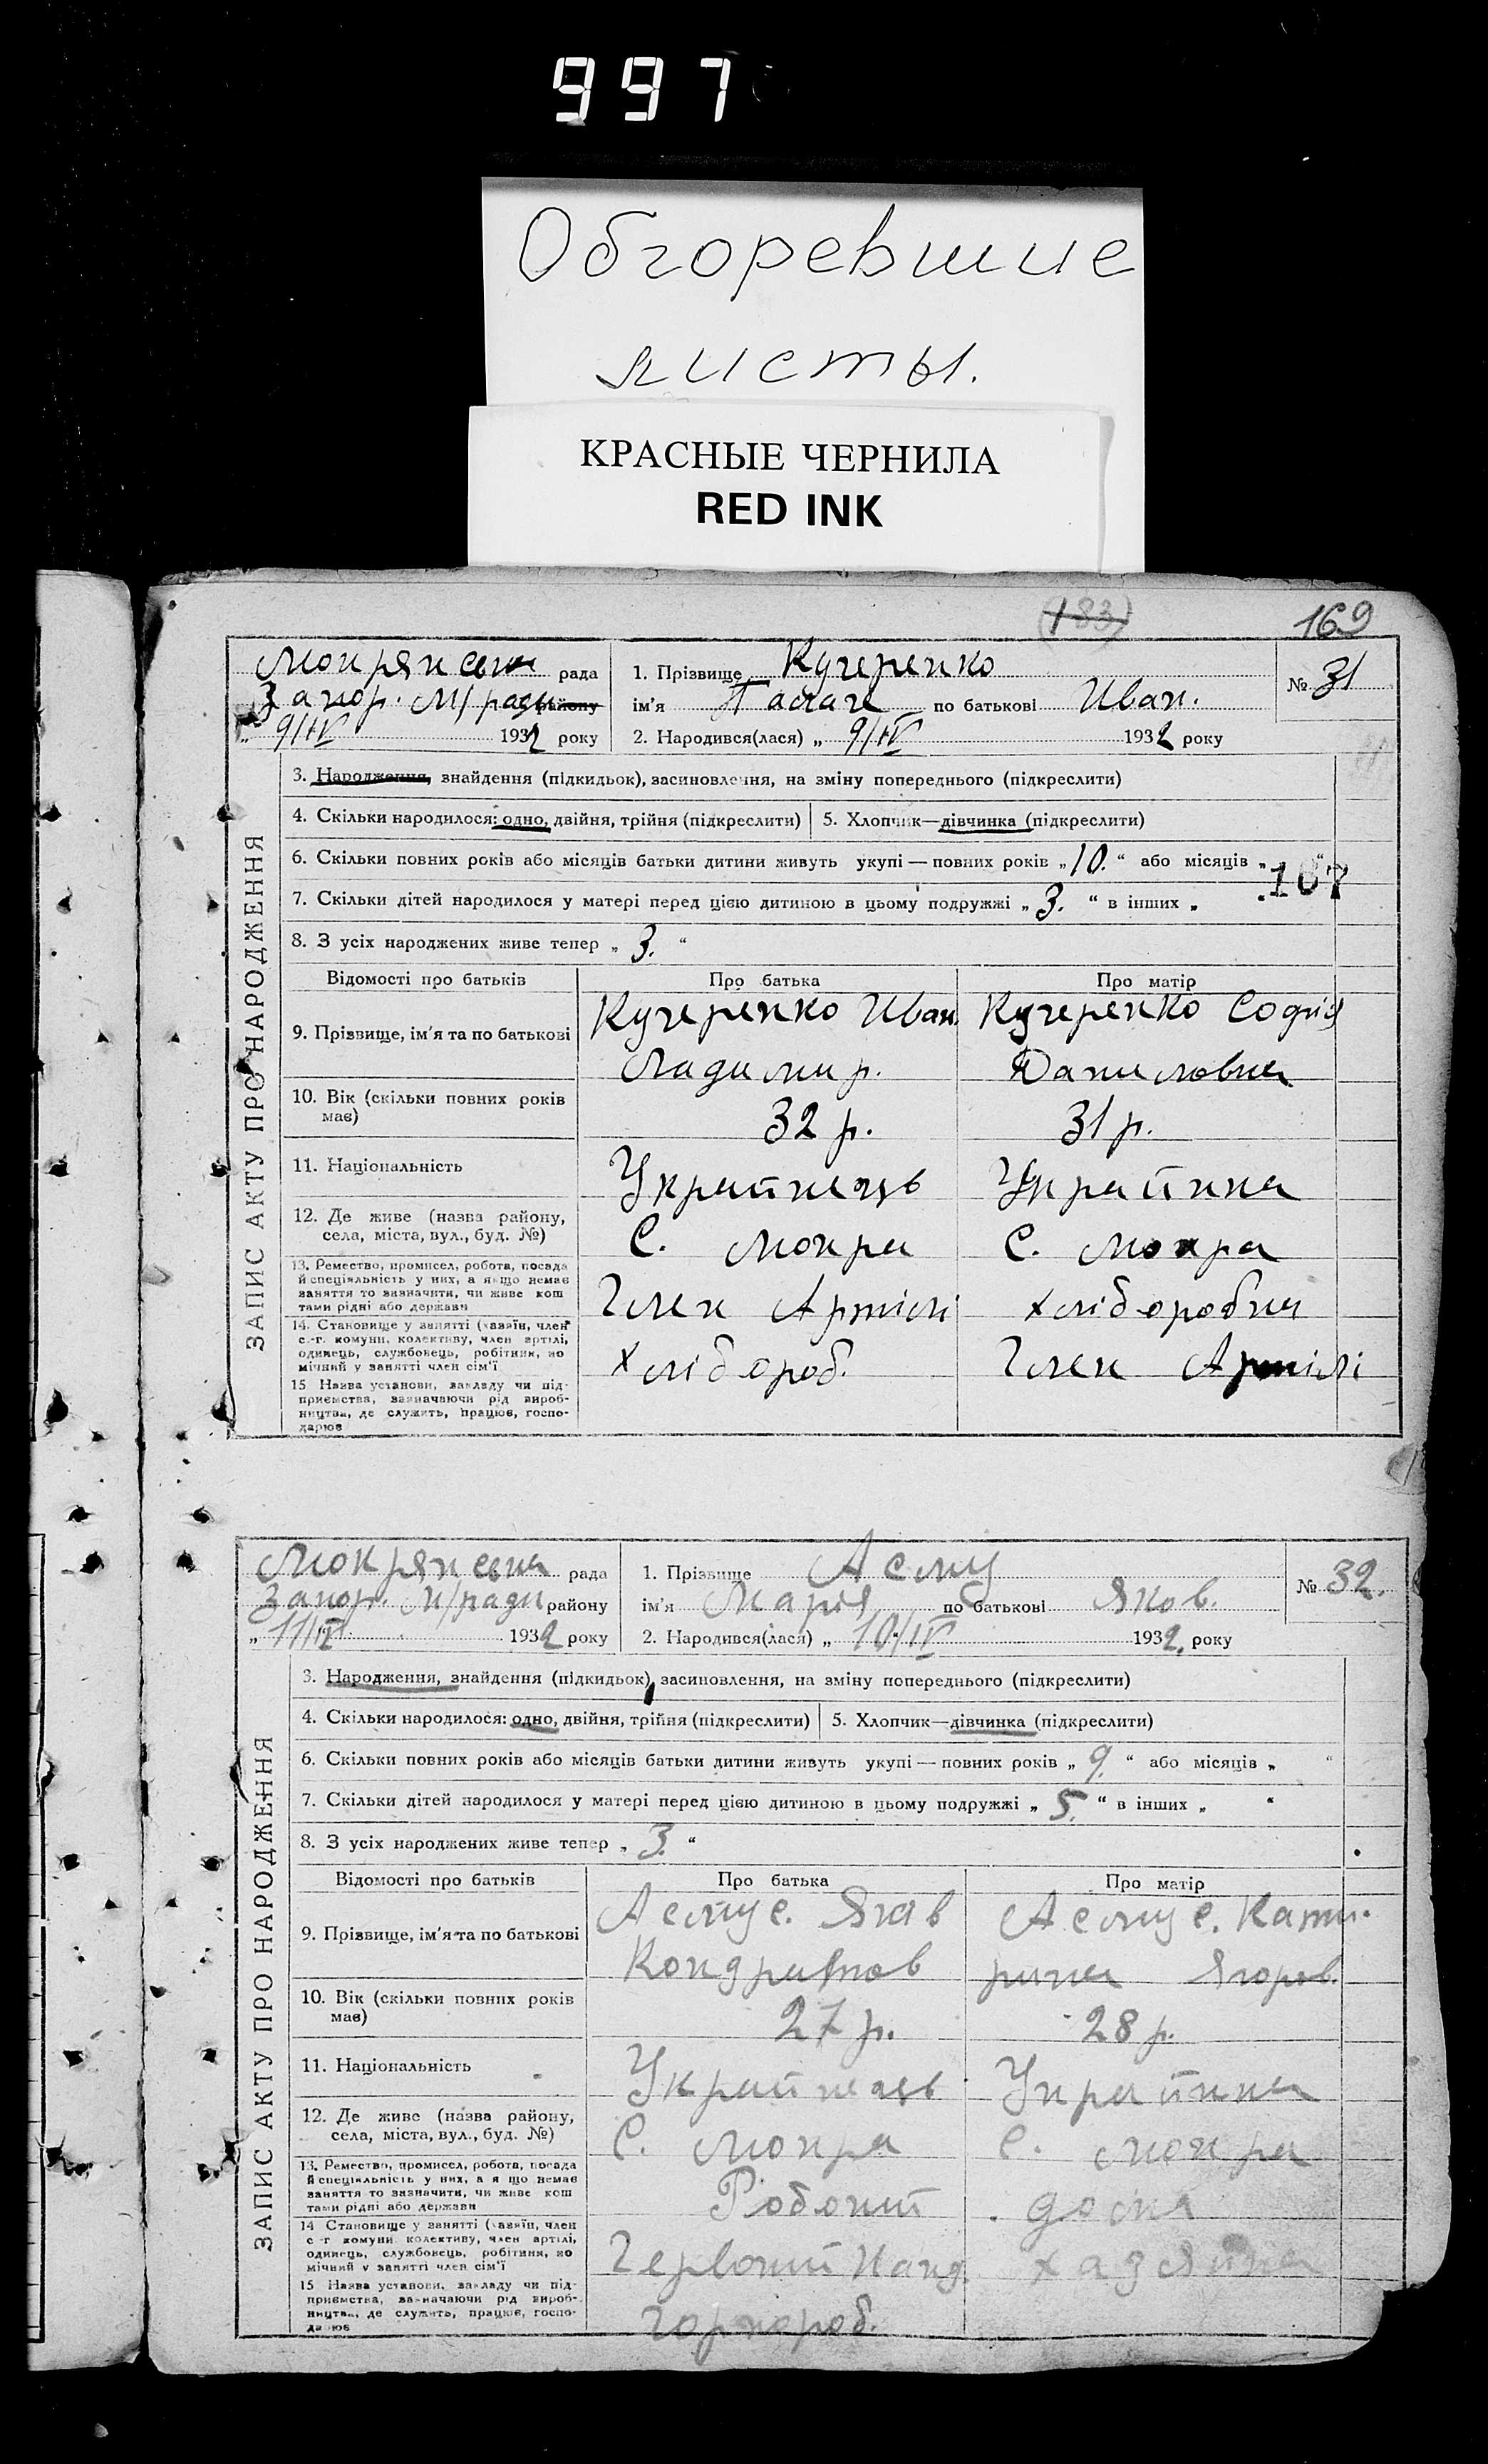 997
Обгоревшие
листы.
КРАСНЫЕ ЧЕРНИЛА
RED INK
(183)
169
Мокрянська рада
Запор. м/ради району
„ 9/IV 1932 року
1. Прізвище Кучеренко
ім'я по батькові Иван.
2. Народився(лася) „ 9/IV 1932 року
№ 31
ЗАПИС АКТУ ПРО НАРОДЖЕННЯ
3. Народження, знайдення (підкидьок), засиновлення, на зміну попереднього (підкреслити)
4. Скільки народилося: одно, двійня, трійня (підкреслити)
5. Хлопчик—дівчинка (підкреслити)
6. Скільки повних років або місяців батьки дитини живуть укупі — повних років „ 10. “ або місяців „ “
107
7. Скільки дітей народилося у матері перед цією дитиною в цьому подружжі „ 3. “ в інших „
8. З усіх народжених живе тепер „ 3. “
Відомості про батьків
Про батька
Про матір
9. Прізвище, ім'я та по батькові
Кучеренко Иван
Ладимир.
Кучеренко Софія
Даниловна
10. Вік (скільки повних років має)
32 р.
31 р.
11. Національність
Українець
Українка
12. Де живе (назва району, села, міста, вул., буд. №)
С. Мокра
С. Мокра
13. Ремество, промисел, робота, посада
й спеціяльність у них, а якщо немає
заняття то визначити, чи живе кош
тами рідні або держави
Член Артілі
хліборобка
14. Становище у занятті (хазяїн, член
с.-г. комуни, колективу, член артілі,
одинець, службовець, робітник, по
мічний у занятті член сім'ї
хлібороб.
Член Артілі
15 Назва установи, закладу чи під-
приємства, зазначаючи рід вироб-
ництва, де служить, працює, госпо-
дарює
Мокрянська рада
Запор. м/ради району
„ 11/IV 1932 року
1. Прізвище Асмус
ім'я Марія по батькові Яков.
2. Народився(лася) „ 10/IV 1932. року
№ 32.
ЗАПИС АКТУ ПРО НАРОДЖЕННЯ
3. Народження, знайдення (підкидьок), засиновлення, на зміну попереднього (підкреслити)
4. Скільки народилося: одно, двійня, трійня (підкреслити)
5. Хлопчик—дівчинка (підкреслити)
6. Скільки повних років або місяців батьки дитини живуть укупі — повних років „ 9. “ або місяців „ “
7. Скільки дітей народилося у матері перед цією дитиною в цьому подружжі „ 5. “ в інших „ “
8. З усіх народжених живе тепер „ 3. “
Відомості про батьків
Про батька
Про матір
9. Прізвище, ім'я та по батькові
Асмус. Яков
Кондратов
Асмус. Кати-
рина Ягоров.
10. Вік (скільки повних років має)
27 р.
28 р.
11. Національність
Українець
Українка
12. Де живе (назва району, села, міста, вул., буд. №)
С. Мокра
С. Мокра
13. Ремество, промисел, робота, посада
й спеціяльність у них, а якщо немає
заняття то зазначити, чи живе кош
тами рідні або держави
Робочий
дома
14 Становище у занятті (хазяїн, член
с-г комуни колективу, член артілі,
одинець, службовець, робітник, по
мічний у занятті член сім'ї
хазяйка
15 Назва установи, закладу чи під-
приємства, зазначаючи рід вироб-
ництва, де служить, працює, госпо-
дарює